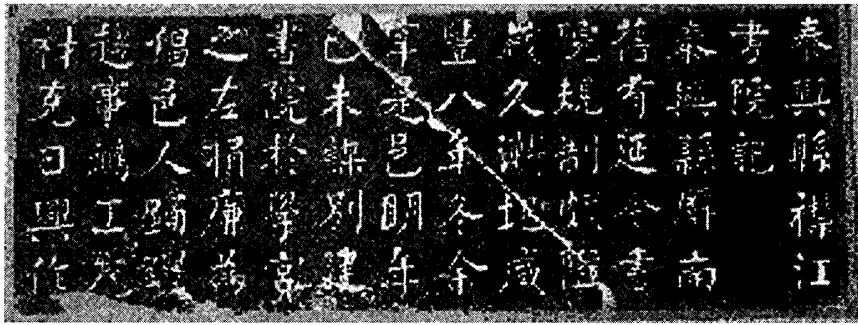 泰興縣襟江
書院記
泰興縣南
舊有延令書
院規制頗隘
歲久漸圮咸
豐八年冬余
宰是邑明年
己未謀別建
書院於學宮
之左捐廉為
倡邑人踴躍
趨事鳩工庀
材克日興作